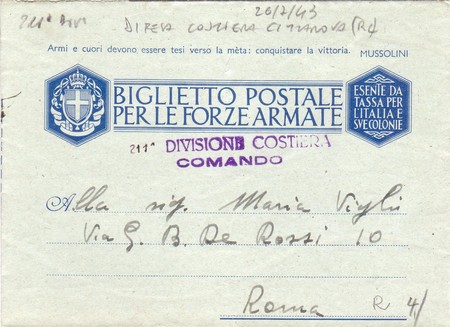 26/7/43
211ª DIVI DIFESA COSTIERA CITTANOVA (RC)
Armi e cuori devono essere tesi verso la mèta: conquistare la vittoria. MUSSOLINI
BIGLIETTO POSTALE
PER LE FORZE ARMATE
ESENTE DA
TASSA PER
L'ITALIA E
SVE COLONIE
211ª DIVISIONE COSTIERA
COMANDO
Alla sig. Maria Vigli
Via G. B. De Rossi 10
Roma R 4/